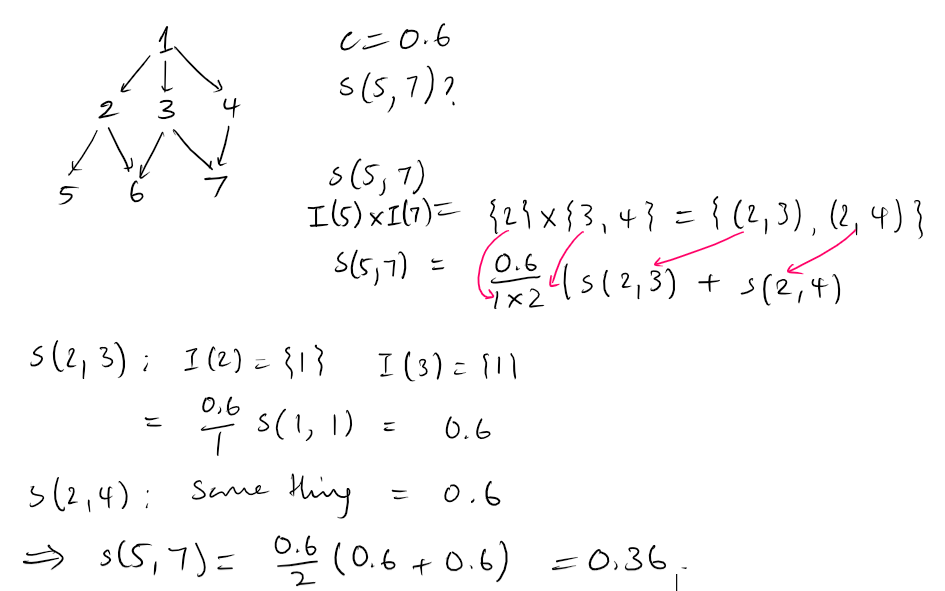 1
c = 0.6
s(5, 7)?
2 3 4
5 6 7
s(5, 7)
I(5) x I(7) = {2} x {3, 4} = { (2, 3), (2, 4) }
s(5, 7) = 0.6 / 1 x 2 ( s(2, 3) + s(2, 4)
s(2, 3) : I(2) = {1} I(3) = {1}
= 0.6 / 1 s(1, 1) = 0.6
s(2, 4) : same thing = 0.6
⇒ s(5, 7) = 0.6 / 2 (0.6 + 0.6) = 0.36